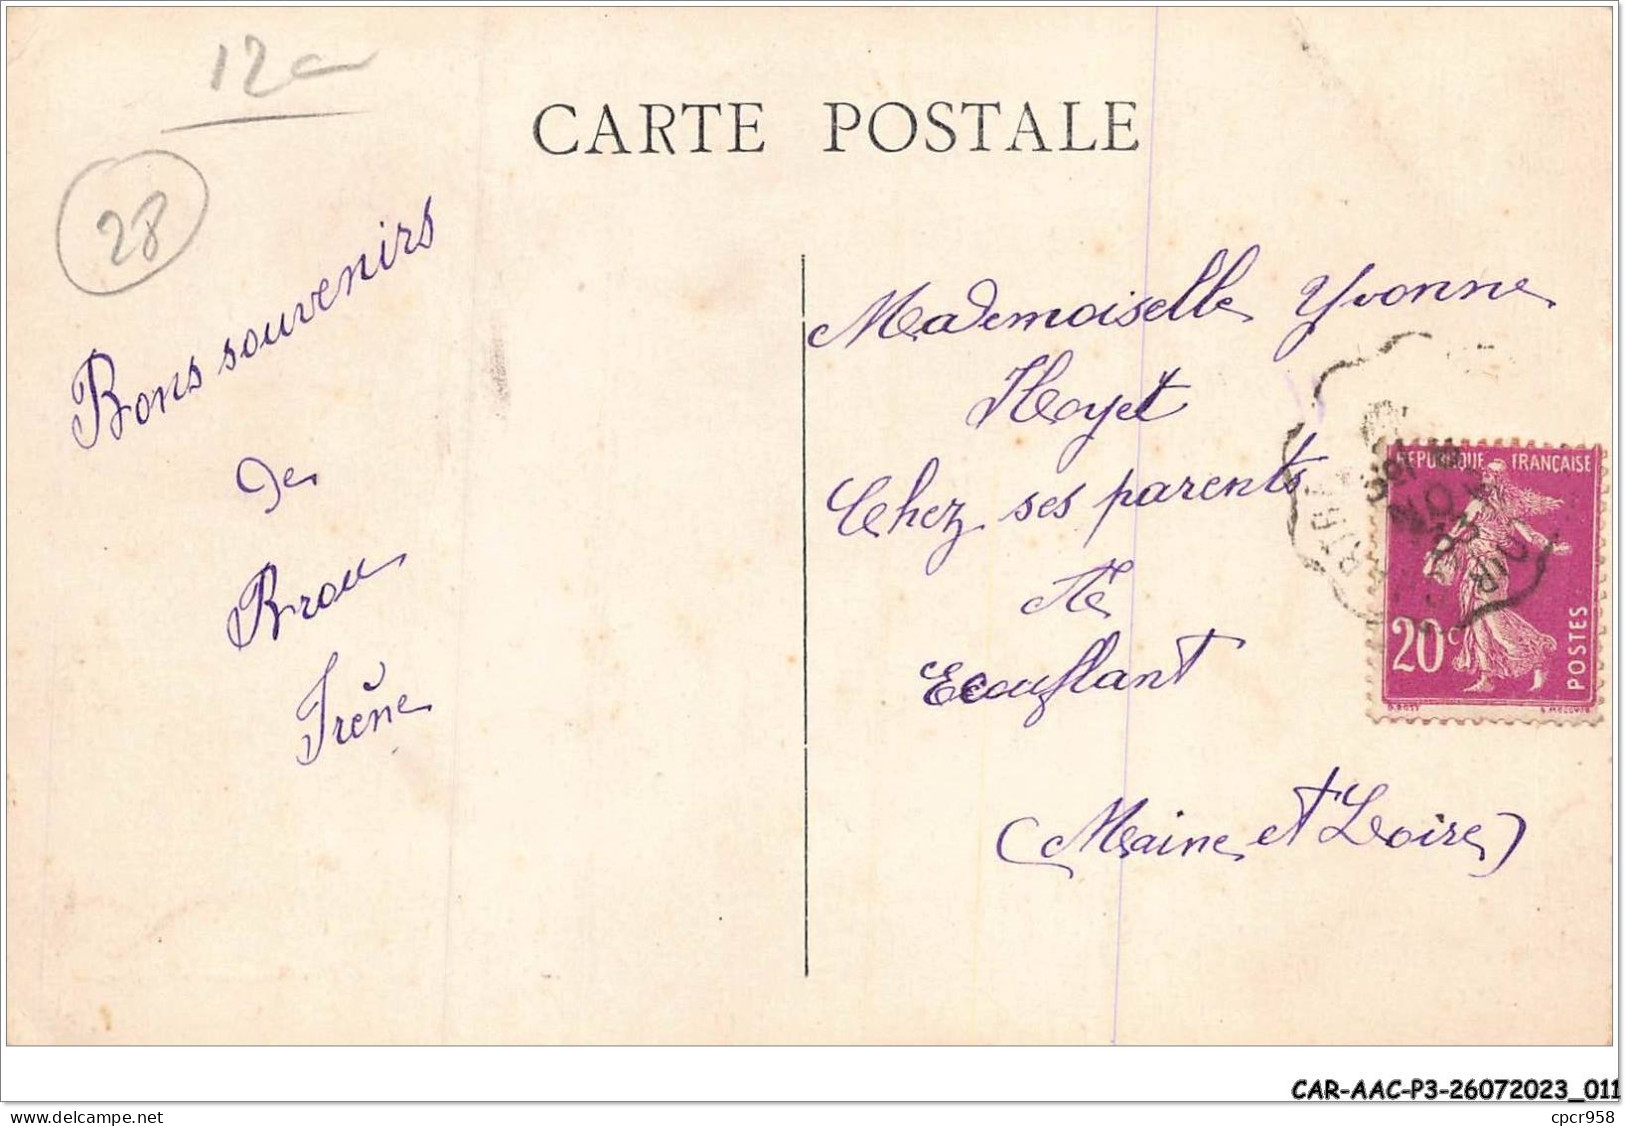 12
28
CARTE POSTALE
Bons souvenirs
de
Brou
Irène
Mademoiselle Yvonne
Hoyet
Chez ses parents
à
Ecouflant
(Maine et Loire)
REPUBLIQUE FRANÇAISE
20c
POSTES
CAR-AAC-P3-26072023_011
delcampe.net
cpcr958